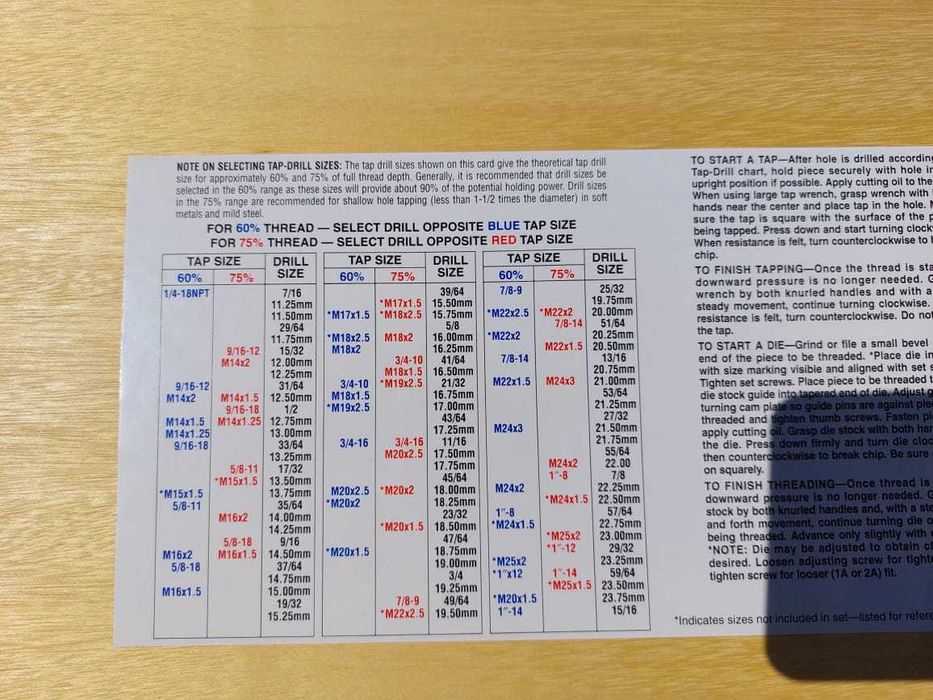 NOTE ON SELECTING TAP-DRILL SIZES: The tap drill sizes shown on this card give the theoretical tap drill
size for approximately 60% and 75% of full thread depth. Generally, it is recommended that drill sizes be
selected in the 60% range as these sizes will provide about 90% of the potential holding power. Drill sizes
in the 75% range are recommended for shallow hole tapping (less than 1-1/2 times the diameter) in soft
metals and mild steel.
FOR 60% THREAD — SELECT DRILL OPPOSITE BLUE TAP SIZE
FOR 75% THREAD — SELECT DRILL OPPOSITE RED TAP SIZE
TAP SIZE DRILL SIZE
60% 75%
1/4-18NPT 7/16
11.25mm
11.50mm
29/64
11.75mm
9/16-12 15/32
M14x2 12.00mm
12.25mm
9/16-12 31/64
M14x2 M14x1.5 12.50mm
9/16-18 1/2
M14x1.5 M14x1.25 12.75mm
M14x1.25 13.00mm
9/16-18 33/64
13.25mm
5/8-11 17/32
*M15x1.5 13.50mm
*M15x1.5 13.75mm
5/8-11 35/64
M16x2 14.00mm
14.25mm
5/8-18 9/16
M16x2 M16x1.5 14.50mm
5/8-18 37/64
14.75mm
M16x1.5 15.00mm
19/32
15.25mm
TAP SIZE DRILL SIZE
60% 75%
39/64
*M17x1.5 15.50mm
*M17x1.5 *M18x2.5 15.75mm
5/8
*M18x2.5 M18x2 16.00mm
M18x2 16.25mm
3/4-10 41/64
M18x1.5 16.50mm
3/4-10 *M19x2.5 21/32
M18x1.5 16.75mm
*M19x2.5 17.00mm
43/64
17.25mm
3/4-16 3/4-16 11/16
M20x2.5 17.50mm
17.75mm
45/64
M20x2.5 *M20x2 18.00mm
*M20x2 18.25mm
23/32
*M20x1.5 18.50mm
47/64
*M20x1.5 18.75mm
19.00mm
3/4
19.25mm
7/8-9 49/64
*M22x2.5 19.50mm
TAP SIZE DRILL SIZE
60% 75%
7/8-9 25/32
19.75mm
*M22x2.5 *M22x2 20.00mm
7/8-14 51/64
*M22x2 20.25mm
M22x1.5 20.50mm
7/8-14 13/16
20.75mm
M22x1.5 M24x3 21.00mm
53/64
21.25mm
27/32
M24x3 21.50mm
21.75mm
55/64
M24x2 22.00
1"-8 7/8
M24x2 22.25mm
*M24x1.5 22.50mm
1"-8 57/64
*M24x1.5 22.75mm
*M25x2 23.00mm
*1"-12 29/32
*M25x2 23.25mm
*1"x12 1"-14 59/64
*M25x1.5 23.50mm
*M20x1.5 23.75mm
1"-14 15/16
TO START A TAP—After hole is drilled according
Tap-Drill chart, hold piece securely with hole in
upright position if possible. Apply cutting oil to the
When using large tap wrench, grasp wrench with
hands near the center and place tap in the hole.
sure the tap is square with the surface of the
being tapped. Press down and start turning
When resistance is felt, turn counterclockwise to
chip.
TO FINISH TAPPING—Once the thread is
downward pressure is no longer needed.
wrench by both knurled handles and with a
steady movement, continue turning clockwise.
resistance is felt, turn counterclockwise. Do not
the tap.
TO START A DIE—Grind or file a small bevel
end of the piece to be threaded. *Place die in
with size marking visible and aligned with set
Tighten set screws. Place piece to be threaded
die stock guide into tapered end of die. Adjust
turning cam plate so guide pins are against
threaded and tighten thumb screws. Fasten
apply cutting oil. Grasp die stock with both
the die. Press down firmly and turn die
then counterclockwise to break chip. Be sure
on squarely.
TO FINISH THREADING—Once thread is
downward pressure is no longer needed.
stock by both knurled handles and, with a
and forth movement, continue turning die
being threaded. Advance only slightly with
*NOTE: Die may be adjusted to obtain
desired. Loosen adjusting screw for
tighten screw for looser (1A or 2A) fit.
*Indicates sizes not included in set—listed for